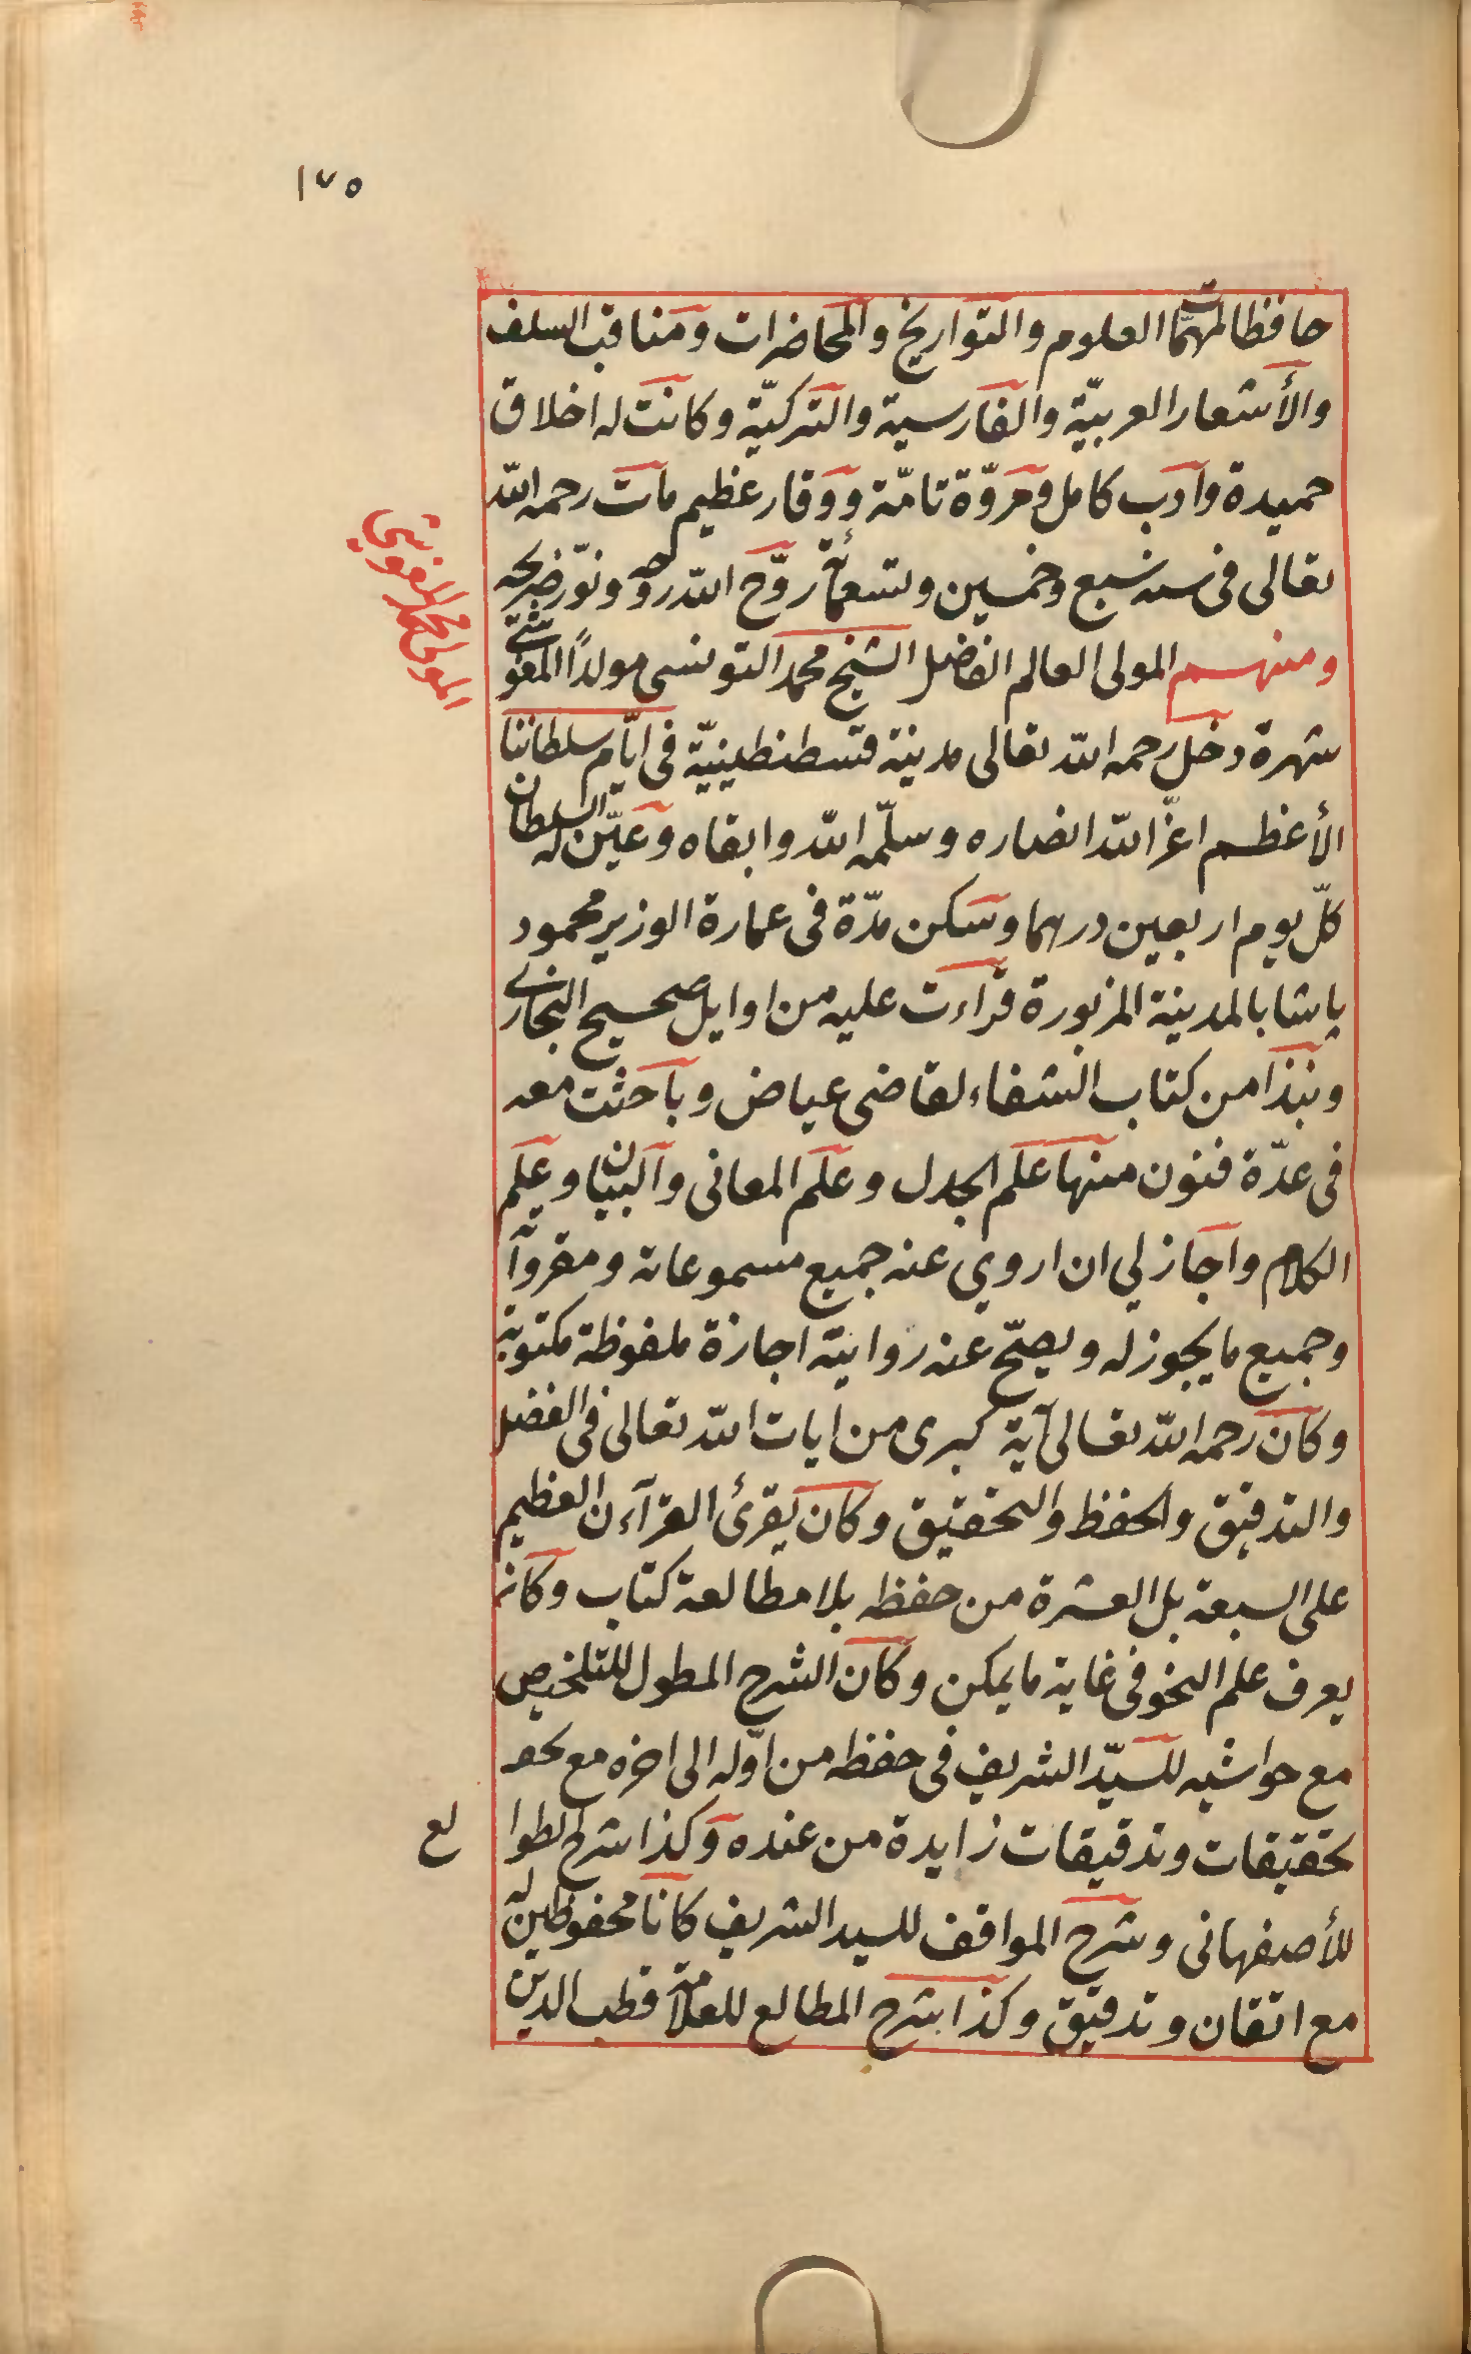 ١٧٥
حافظا لمهمّات العلوم والتواريخ والمحاضرات ومناقب السلف
والأشعار العربيّة والفارسية والتركيّة وكانت له اخلاق
حميدة وآدب كامل ومروّة تامّة ووقار عظيم مات رحمه الله
تعالى فى سنه سبع وخمسين وتسعمائة روّح الله روحه ونوّر ضريحه
ومنهم المولى العالم الفاضل الشيخ محمد التونسى مولدًا المغوشى
المولى محمد المغوشى
شهرة دخل رحمه الله تعالى مدينة قسطنطينيّة فى ايّام سلطاننا
الأعظم اعزّ الله انصاره وسلّمه الله وابقاه وعيّن له السلطان
كلّ يوم اربعين درهما وسكن مدّة فى عمارة الوزير محمود
پاشا بالمدينة المزبورة قراءت عليه من اوايل صحيح البخارى
ونبذا من كتاب الشفاء لقاضى عياض وباحثت معه
فى عدّة فنون منها علم الجدل وعلم المعانى والبيان وعلم
الكلام واجاز لي ان اروي عنه جميع مسموعاته ومقروآ
وجميع ما يجوز له ويصحّ عنه روايته اجازة ملفوظة مكتوبة
وكان رحمه الله تعالى آية كبرى من ايات الله تعالى فى الفضل
والتدقيق والحفظ والتحقيق وكان يقرئ القرآءن العظيم
على السبعة بل العشرة من حفظه بلا مطالعة كتاب وكان
يعرف علم النحو فى غاية ما يمكن وكان الشرح المطول للتلخيص
مع حواشيه للسيّد الشريف فى حفظه من اوّله الى اخره مع تحقـ
تحقيقات وتدقيقات زايدة من عنده وكذا شرح الطوا
لع
للأصفهانى وشرح المواقف للسيد الشريف كانا محفوظين له
مع اتقان وتدقيق وكذا شرح المطالع للعلامة قطب الدين